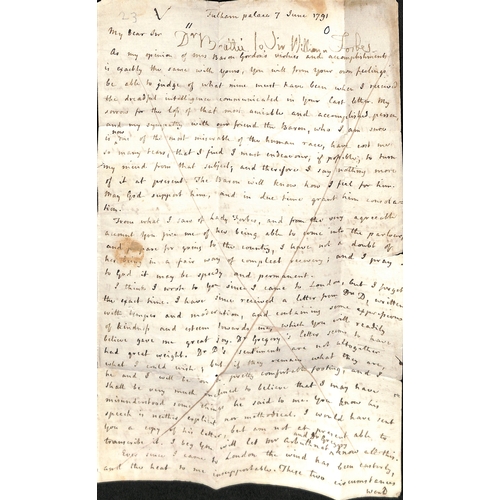 23
Fulham palace 7 June 1791
Dr Beattie to Sir William Forbes
My Dear Sir
As my opinion of Mrs Baron Gordon's virtues and accomplishments
is exactly the same with yours, you will from your own feelings
be able to judge of what mine must have been when I received
the dreadful intelligence communicated in your last letter. My
sorrow for the loss of that most amiable and accomplished person,
and my sympathy with our friend the Baron, who I am sure
is now one of the most miserable of the human race, have cost me
so many tears, that I find I must endeavour, if possible, to turn
my mind from that subject; and therefore I say nothing more
of it at present. The Baron will know how I feel for him.
May God support him, and in due time grant him consolation
him.
From what I saw of Lady Forbes, and from the very agreeable
account you give me of her being able to come into the parlour,
and prepare for going to the country, I have not a doubt of
her being in a fair way of compleat recovery; and I pray
to God it may be speedy and permanent.
I think I wrote to you since I came to London, but I forget
the exact time. I have since received a letter from Dr D, written
with temper and moderation, and containing some expressions
of kindness and esteem towards me, which you will readily
believe gave me great joy. Dr Gregory's letter seems to have
had great weight. Dr D's sentiments are not altogether
what I could wish; but if they remain what they are,
he and I will be on a pretty comfortable footing; and I
shall be very much inclined to believe that I may have
misunderstood some things he said to me. You know his
speech is neither explicit nor methodical. I would have sent
you a copy of his letter, but am not at present able to
transcribe it. I beg you will let Mr Arbuthnot and Dr Gregory know all this.
Ever since I came to London the wind has been easterly,
and the heat to me insupportable. These two circumstances
went